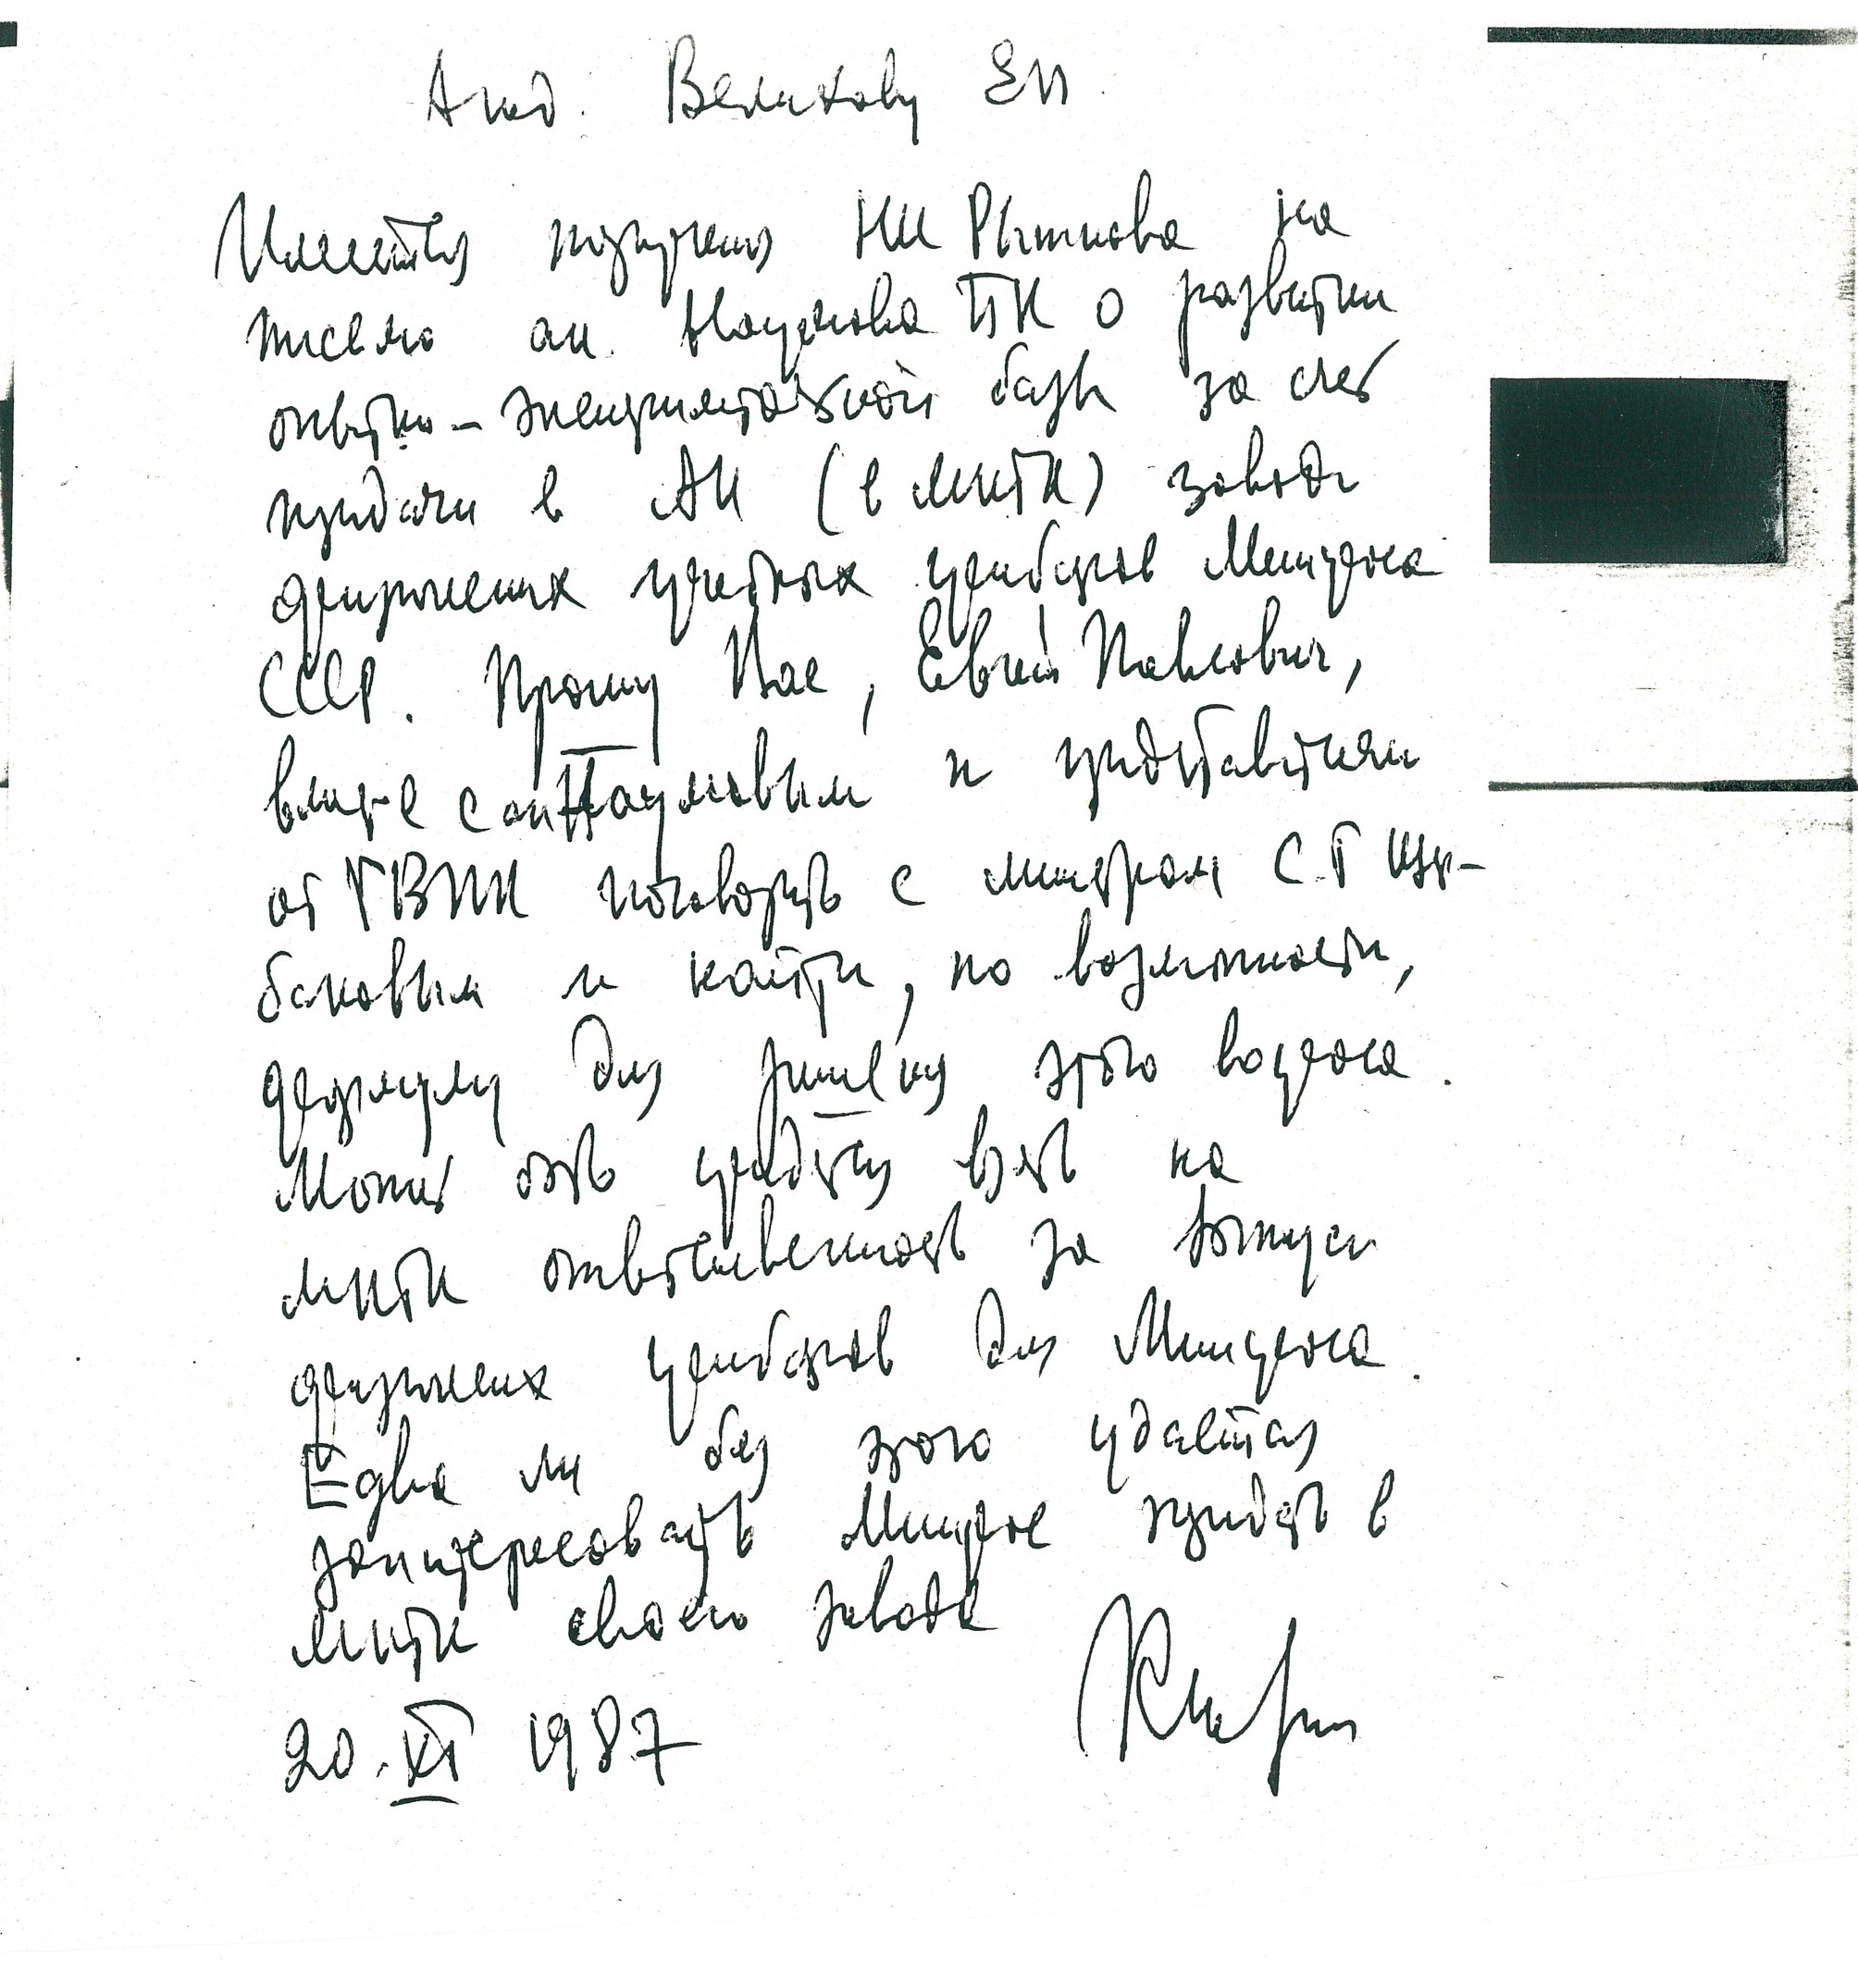 Акад. Велихову ЕП.
Имеется поручение НИ Рыжкова на
письмо ак. Наумова ПК о развитии
опытно-экспериментальной базы за счет
придачи в АН (в МНТК) завода
физических учебных приборов Минпроса
СССР. Прошу Вас, Евгений Павлович,
вместе с ак Наумовым и представителями
от ГВПК поговорить с министром С Г Щер-
баковым и найти, по возможности,
формулу для решения этого вопроса.
Может быть придется взять на
МНТК ответственность за выпуск
физических приборов для Минпроса.
Едва ли без этого удается
заинтересовать Минпрос придать в
МНТК своего завода
20.XI 1987